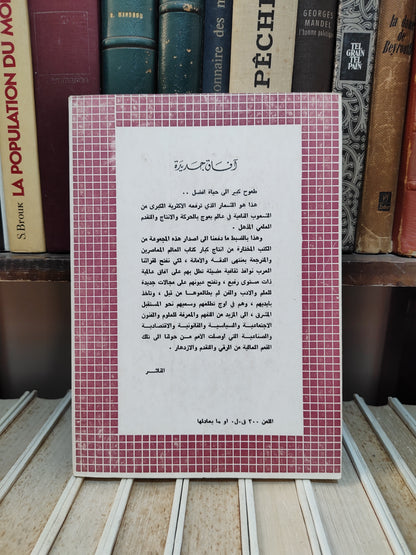 LA POPULATION DU MO
S. BROUK
E. MANDEUL
onnaire des m
PÊCHE
GEORGES
MANDEL
l'homme politique
TEL
GRAIN
TEL
PAIN
la
de
Beyrou
آفاق جديدة
طموح كبير الى حياة افضل . .
هذا هو الشعار الذي ترفعه الاكثرية الكبرى من
الشعوب النامية في عالم يموج بالحركة والانتاج والتقدم
العلمي المذهل .
وهذا بالضبط ما دفعنا الى اصدار هذه المجموعة من
الكتب المختارة من انتاج كبار كتاب العالم المعاصرين
والمترجمة بمنتهى الدقة والامانة ، لكي نفتح لقرائنا
العرب نوافذ ثقافية مضيئة نطل بهم على آفاق عالمية
ذات مستوى رفيع ، ونفتح عيونهم على مجالات جديدة
للعلم والادب والفن لم يطالعوها من قبل ، ونأخذ
بايديهم ، وهم في اوج تطلعهم وسعيهم نحو المستقبل
المشرق ، الى المزيد من الفهم والمعرفة للعلوم والفنون
الاجتماعية والسياسية والقانونية والاقتصادية
والصناعية التي اوصلت الامم من حولنا الى تلك
القمم العالية من الرقي والتقدم والازدهار .
الناشر
الثمن ٣٠٠ ق.ل. او ما يعادلها